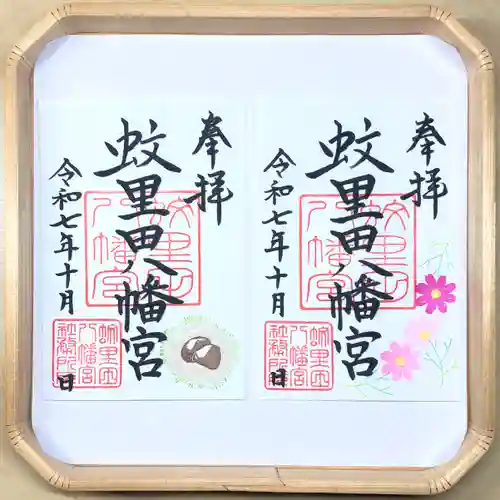 奉拝
蚊里田八幡宮
令和七年十月 日
蚊里田
八幡宮
蚊里田
八幡宮
社務所
奉拝
蚊里田八幡宮
令和七年十月 日
蚊里田
八幡宮
蚊里田
八幡宮
社務所